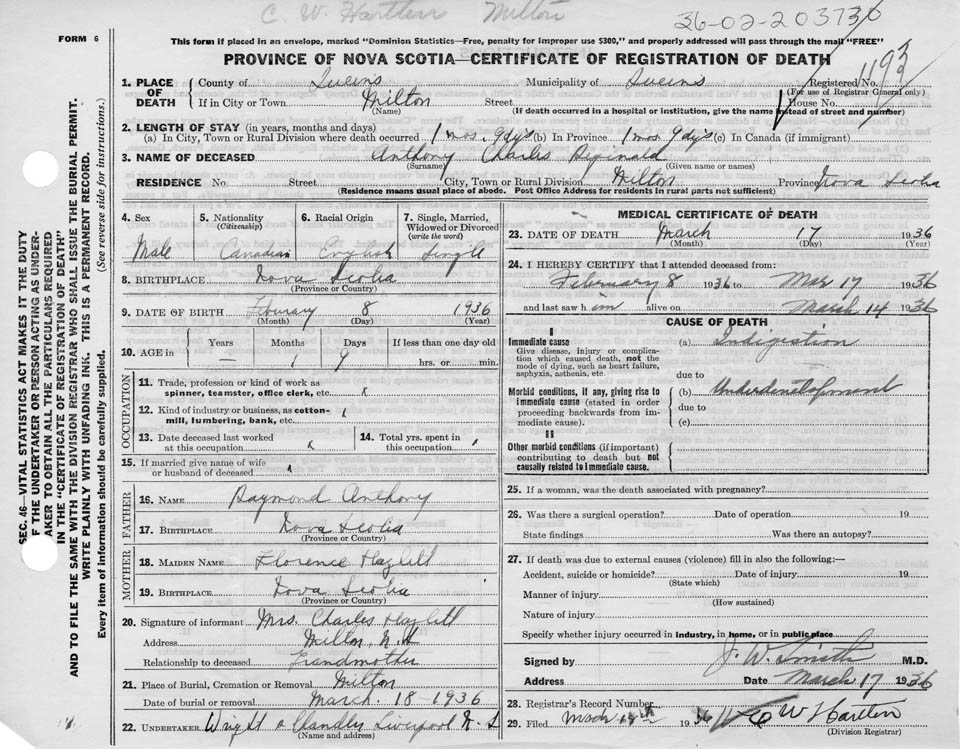 C. W. Hartlen Milton
36-02-203736
FORM 6
This form if placed in an envelope, marked "Dominion Statistics—Free, penalty for improper use $300," and properly addressed will pass through the mail "FREE"
PROVINCE OF NOVA SCOTIA—CERTIFICATE OF REGISTRATION OF DEATH
1193
1. PLACE OF DEATH County of Queens Municipality of Queens Registered No.
(For use of Registrar General only)
If in City or Town Milton Street House No.
(Name) (If death occurred in a hospital or institution, give the name instead of street and number)
2. LENGTH OF STAY (in years, months and days)
(a) In City, Town or Rural Division where death occurred 1 mos. 9 dys (b) In Province 1 mos 9 dys (c) In Canada (if immigrant)
3. NAME OF DECEASED Anthony Charles Reginald
(Surname) (Given name or names)
RESIDENCE No. Street City, Town or Rural Division Milton Province Nova Scotia
(Residence means usual place of abode. Post Office Address for residents in rural parts not sufficient)
4. Sex 5. Nationality (Citizenship) 6. Racial Origin 7. Single, Married, Widowed or Divorced (write the word)
Male Canadian English Single
8. BIRTHPLACE Nova Scotia
(Province or Country)
9. DATE OF BIRTH 8 1936
(Month) (Day) (Year)
10. AGE in Years Months Days If less than one day old
— 1 9 hrs. or min.
OCCUPATION
11. Trade, profession or kind of work as spinner, teamster, office clerk, etc.
12. Kind of industry or business, as cotton-mill, lumbering, bank, etc.
13. Date deceased last worked at this occupation
14. Total yrs. spent in this occupation
15. If married give name of wife or husband of deceased
FATHER
16. NAME Raymond Anthony
17. BIRTHPLACE Nova Scotia
(Province or Country)
MOTHER
18. MAIDEN NAME Florence
19. BIRTHPLACE Nova Scotia
(Province or Country)
20. Signature of informant Mrs. Charles
Address Milton, N.S
Relationship to deceased Grandmother
21. Place of Burial, Cremation or Removal Milton
Date of burial or removal March 18 - 1936
22. UNDERTAKER Wright & Chandler Liverpool N.S
(Name and address)
MEDICAL CERTIFICATE OF DEATH
23. DATE OF DEATH March 17 1936
(Month) (Day) (Year)
24. I HEREBY CERTIFY that I attended deceased from:
February 8 1936 to Mar 17 1936
and last saw him alive on March 14 1936
CAUSE OF DEATH
I
Immediate cause (a) Indigestion
Give disease, injury or complication which caused death, not the mode of dying, such as heart failure, asphyxia, asthenia, etc.
due to
Morbid conditions, if any, giving rise to immediate cause (stated in order proceeding backwards from immediate cause).
(b) Underdevelopment
due to
(c)
II
Other morbid conditions (if important) contributing to death but not causally related to immediate cause.
25. If a woman, was the death associated with pregnancy?
26. Was there a surgical operation? Date of operation 19
State findings Was there an autopsy?
27. If death was due to external causes (violence) fill in also the following:—
Accident, suicide or homicide? Date of injury 19
(State which)
Manner of injury
(How sustained)
Nature of injury
Specify whether injury occurred in industry, in home, or in public place
Signed by J. W. Smith M.D.
Address Date March 17 1936
28. Registrar's Record Number
29. Filed 1936 C W Hartlen
(Division Registrar)
SEC. 46—VITAL STATISTICS ACT MAKES IT THE DUTY
OF THE UNDERTAKER OR PERSON ACTING AS UNDER-
TAKER TO OBTAIN ALL THE PARTICULARS REQUIRED
IN THE "CERTIFICATE OF REGISTRATION OF DEATH"
AND TO FILE THE SAME WITH THE DIVISION REGISTRAR WHO SHALL ISSUE THE BURIAL PERMIT.
WRITE PLAINLY WITH UNFADING INK. THIS IS A PERMANENT RECORD.
Every item of information should be carefully supplied. (See reverse side for instructions.)